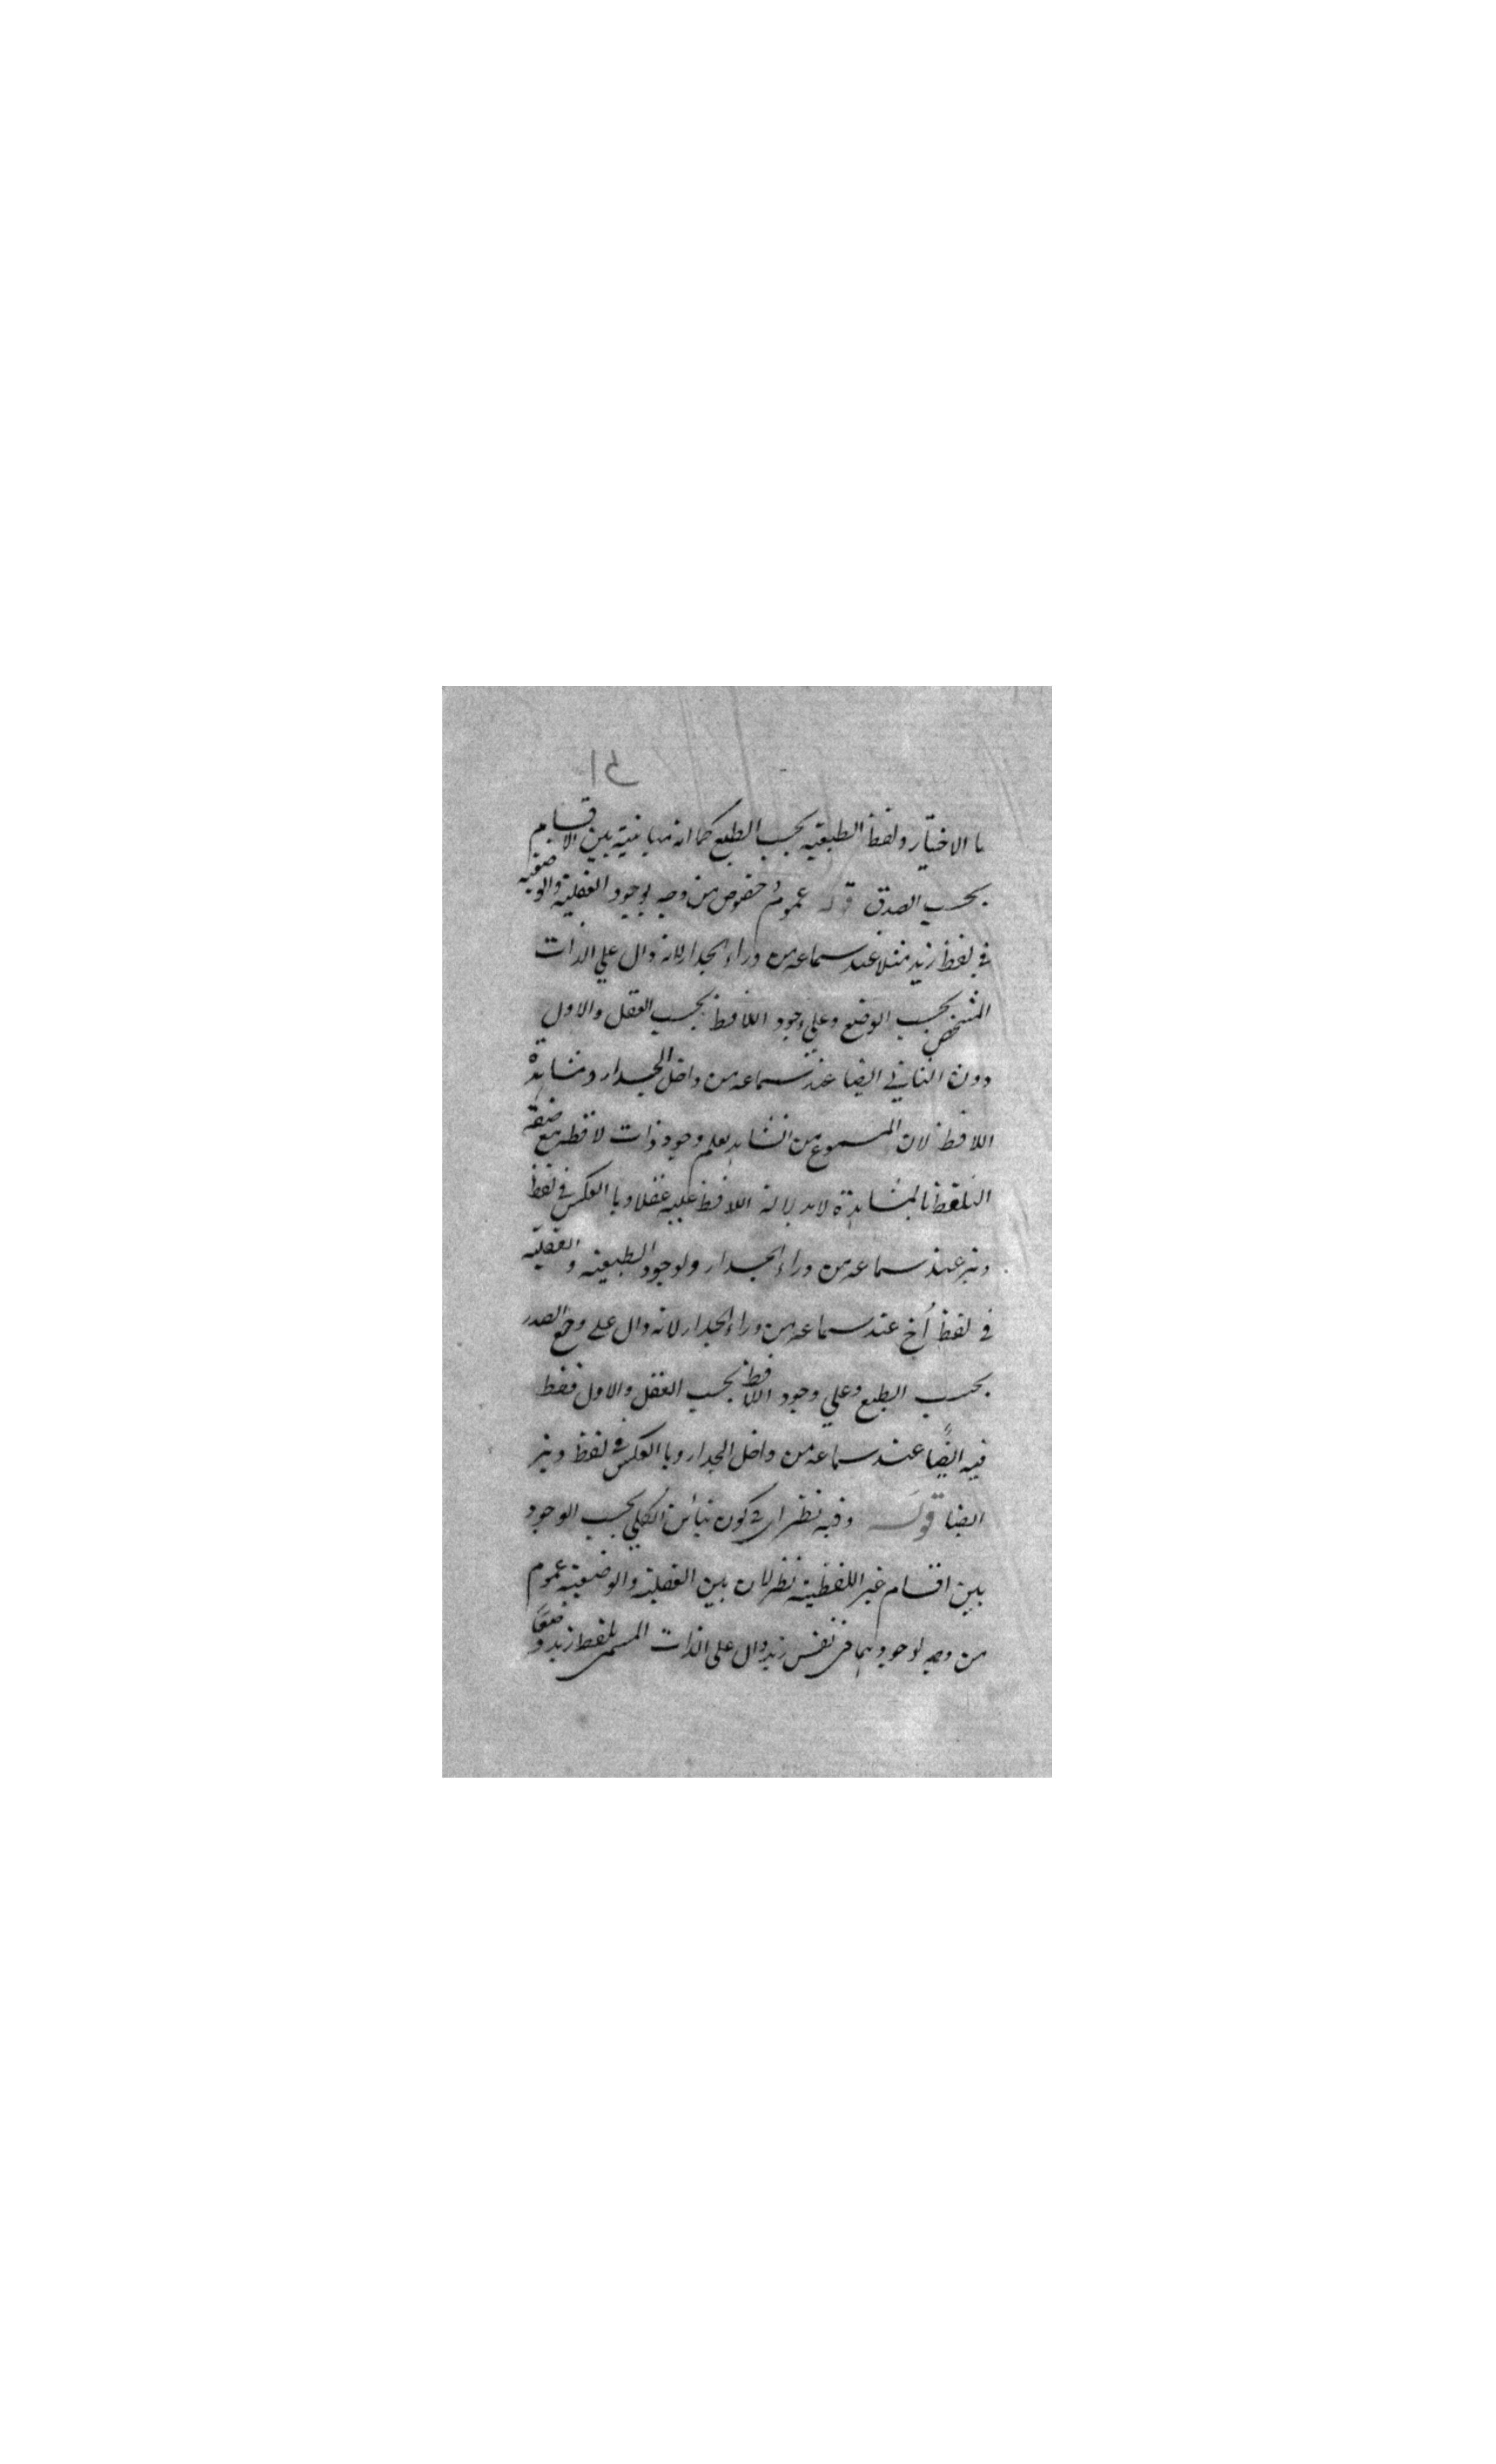 با الاختيار ولفظ الطبعية بحسب الطبع كما انه مباينية بين الاقسام
بحسب الصدق قوله عموم وخصوص من وجه لوجود العقلية والوضعية
في لفظ زيد مثلا عند سماعه من وراء الجدار لانه دال علي الذات
المشخص بحسب الوضع وعلي وجود اللافظ بحسب العقل والاول
دون الثاني ايضا عند سماعه من داخل الجدار ومشاهدة
اللافظ لان المسموع من المشاهد يعلم وجود ذات لافظه مع صفة
التلفظ بالمشاهدة لا بدلالة اللافظ عليه عقلا وبا العكس في لفظ
ديز عند سماعه من وراء الجدار ولوجود الطبيعية والعقلية
في لفظ أخ عند سماعه من وراء الجدار لانه دال علي وجع الصدر
بحسب الطبع وعلي وجود اللافظ بحسب العقل والاول فقط
فيه ايضًا عند سماعه من داخل الجدار وبا العكس في لفظ ديز
ايضا قوله وفيه نظر اي في كون تباين الكلي بحسب الوجود
بين اقسام غير اللفظية نظر لان بين العقلية والوضعية عموم
من وجه لوجودهما في نفس زيد دال علي الذات المسمي بلفظ زيد وضعًا